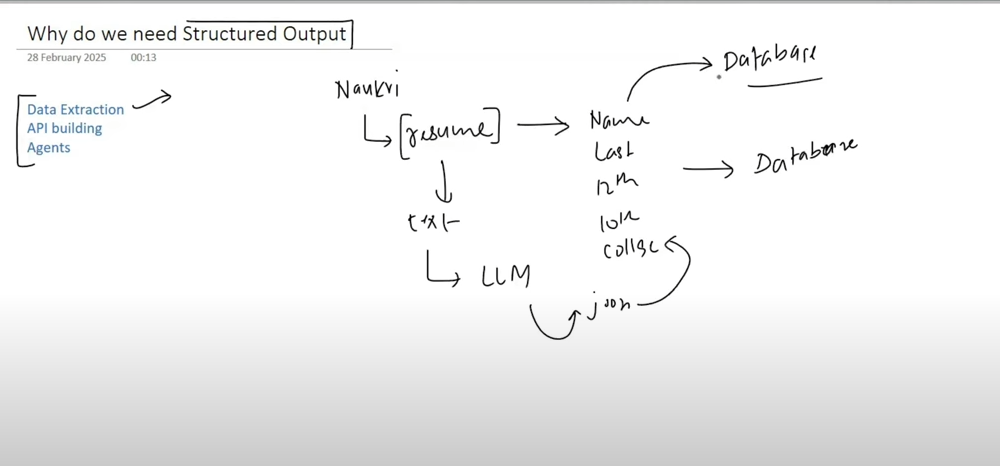 Why do we need Structured Output
28 February 2025 00:13
Data Extraction
API building
Agents
Naukri
[resume]
text
LLM
json
Name
Last
12th
10th
college
Database
Database